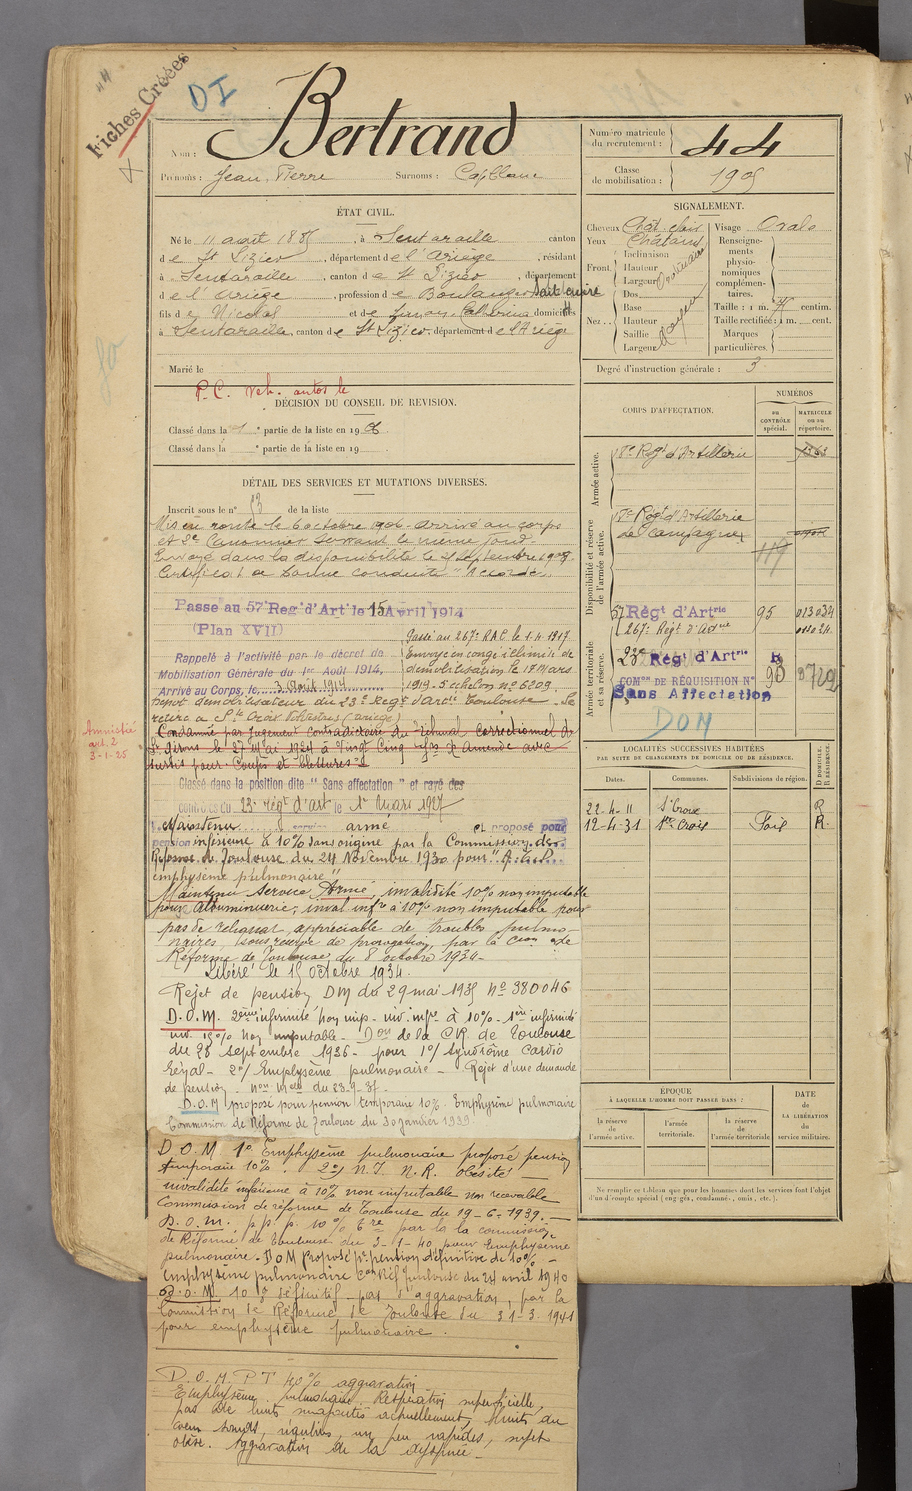 44
Fiches Créées
DI
Nom : Bertrand
Prénoms : Jean, Pierre Surnoms : Capblanc
Numéro matricule
du recrutement : 44
Classe
de mobilisation : 1905
ÉTAT CIVIL.
Né le 11 août 1885, à Sentaraille canton
de St Lizier, département de l'Ariège, résidant
à Sentaraille, canton de St Lizier, département
de l'Ariège, profession de Boulanger sait cuire
fils de Nicolas et de Catherine domiciliés
à Sentaraille, canton de St Lizier, département de l'Ariège
Marié le
P. C. Veh. autos le
DÉCISION DU CONSEIL DE REVISION.
Classé dans la 1e partie de la liste en 1906.
Classé dans la e partie de la liste en 19
DÉTAIL DES SERVICES ET MUTATIONS DIVERSES.
Inscrit sous le n° 53 de la liste
Mis en route le 6 octobre 1906. Arrivé au corps
et 2e Canonnier servant le même jour.
Envoyé dans la disponibilité le septembre 1908
Certificat de bonne conduite "Accordé"
Passé au 57e Reg d'Art le 15 Avril 1914
(Plan XVII)
Rappelé à l'activité par le décret de
Mobilisation Générale du 1er Août 1914.
Arrivé au Corps, le 3 Août 1914
Passé au 267e R.A.C. le 1.4.1917.
Envoyé en congé illimité de
démobilisation le 18 Mars
1919. 5e échelon n° 6209.
Dépôt démobilisateur du 23e Regt d'Artie Toulouse. Se
retire à Ste Croix Volvestre (Ariège)
Condamné par jugement contradictoire du Tribunal correctionnel de
St Girons le 27 Mai 1924 à Vingt Cinq frs d'amende avec
sursis pour : Coups et blessures
Amnistié
art. 2
3-1-25
Classé dans la position dite "Sans affectation" et rayé des
contrôles du 23e régt d'art le 1er Mars 1927
Maintenu service armé et proposé pour
pension inférieure à 10% sans origine par la Commission de
Réforme de Toulouse du 24 Novembre 1930 pour
emphysème pulmonaire"
Maintenu Service Armé, invalidité 10% non imputable
pour albuminurie; inval. infre à 10% non imputable pour
pas de reliquat appréciable de troubles pulmo-
naires, sous réserve de prorogation, par la Con de
Réforme de Toulouse du 8 octobre 1934-
Libéré le 15 Octobre 1934.
Rejet de pension DM du 29 mai 1935 N° 380046
D.O.M. 2ème infirmité non imp. inv. infre à 10% - 1ère infirmité
inv. 15% non imputable. Don de la C.R. de Toulouse
du 28 septembre 1936 - pour 1°/ Syndrôme cardio
rénal - 2°/ Emphysème pulmonaire - Rejet d'une demande
de pension. Non Mielle du 23-9-37.
D.O.M proposé pour pension temporaire 10%. Emphysème pulmonaire
Commission de Réforme de Toulouse du 30 janvier 1939.
D.O.M 1° Emphysème pulmonaire proposé pension
temporaire 10%. 2°) N.I. N.R. obésité
invalidité inférieure à 10% non imputable non recevable
Commission de réforme de Toulouse du 19-6-1939.
D.O.M. p.p.p. 10% Tre par la la commission
de Réforme de Toulouse du 3-1-40 pour Emphysème
pulmonaire. DOM proposé pr pension définitive de 10% -
Emphysème pulmonaire Con Réf Toulouse du 24 avril 1940
D.O.M. 10% définitif pas d'aggravation, par la
Commission de Réforme de Toulouse du 31-3-1941
pour emphysème pulmonaire.
D.O.M. P T 40% aggravation
Emphysème pulmonaire. Respiration superficielle,
pas de bruits surajoutés actuellement, bruits du
coeur sourds, réguliers, un peu rapides, sujet
obèse. Aggravation de la dyspnée.
SIGNALEMENT.
Cheveux Chât. clair
Yeux Châtains
Front. Inclinaison
Hauteur
Largeur Ordinaire
Nez. Dos
Base
Hauteur Moyen
Saillie
Largeur
Visage Ovale
Renseigne-
ments
physio-
nomiques
complémen-
taires.
Taille : 1 m. centim.
Taille rectifiée : 1 m. cent.
Marques
particulières.
Degré d'instruction générale : 3
CORPS D'AFFECTATION.
NUMÉROS
au
CONTRÔLE
spécial.
MATRICULE
ou au
répertoire.
Armée active.
18e Régt d'Artillerie
Disponibilité et réserve
de l'armée active.
Régt d'Artillerie
de campagne
119
57 Régt d'Artrie 95 013034
267e Régt d'Artrie
Armée territoriale
et sa réserve.
23e Régt d'Artrie R
COMon DE RÉQUISITION N° 93
Sans Affectation
DOM
LOCALITÉS SUCCESSIVES HABITÉES
PAR SUITE DE CHANGEMENTS DE DOMICILE OU DE RÉSIDENCE.
Dates. Communes. Subdivisions de région. D DOMICILE. R RÉSIDENCE.
22-4-11 Ste Croix R
12-4-31 Ste Croix Foix R.
ÉPOQUE
À LAQUELLE L'HOMME DOIT PASSER DANS :
la réserve
de
l'armée active.
l'armée
territoriale.
la réserve
de
l'armée territoriale
DATE
de
LA LIBÉRATION
du
service militaire.
Ne remplir ce tableau que pour les hommes dont les services font l'objet
d'un décompte spécial (engagés, condamnés, omis, etc.).